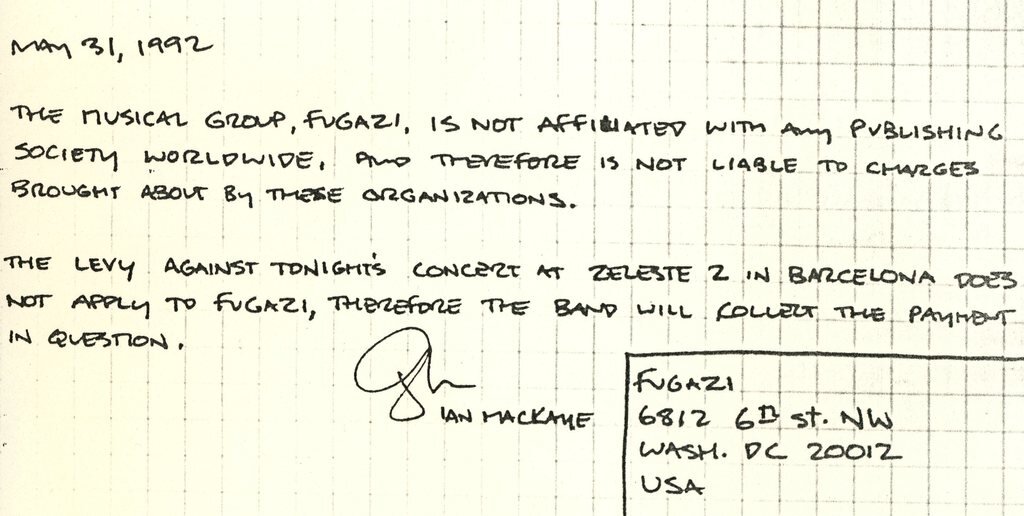 MAY 31, 1992
THE MUSICAL GROUP, FUGAZI, IS NOT AFFILIATED WITH ANY PUBLISHING
SOCIETY WORLDWIDE, AND THEREFORE IS NOT LIABLE TO CHARGES
BROUGHT ABOUT BY THESE ORGANIZATIONS.
THE LEVY AGAINST TONIGHT'S CONCERT AT ZELESTE 2 IN BARCELONA DOES
NOT APPLY TO FUGAZI, THEREFORE THE BAND WILL COLLECT THE PAYMENT
IN QUESTION.
IAN MACKAYE
FUGAZI
6812 6TH ST. NW
WASH. DC 20012
USA